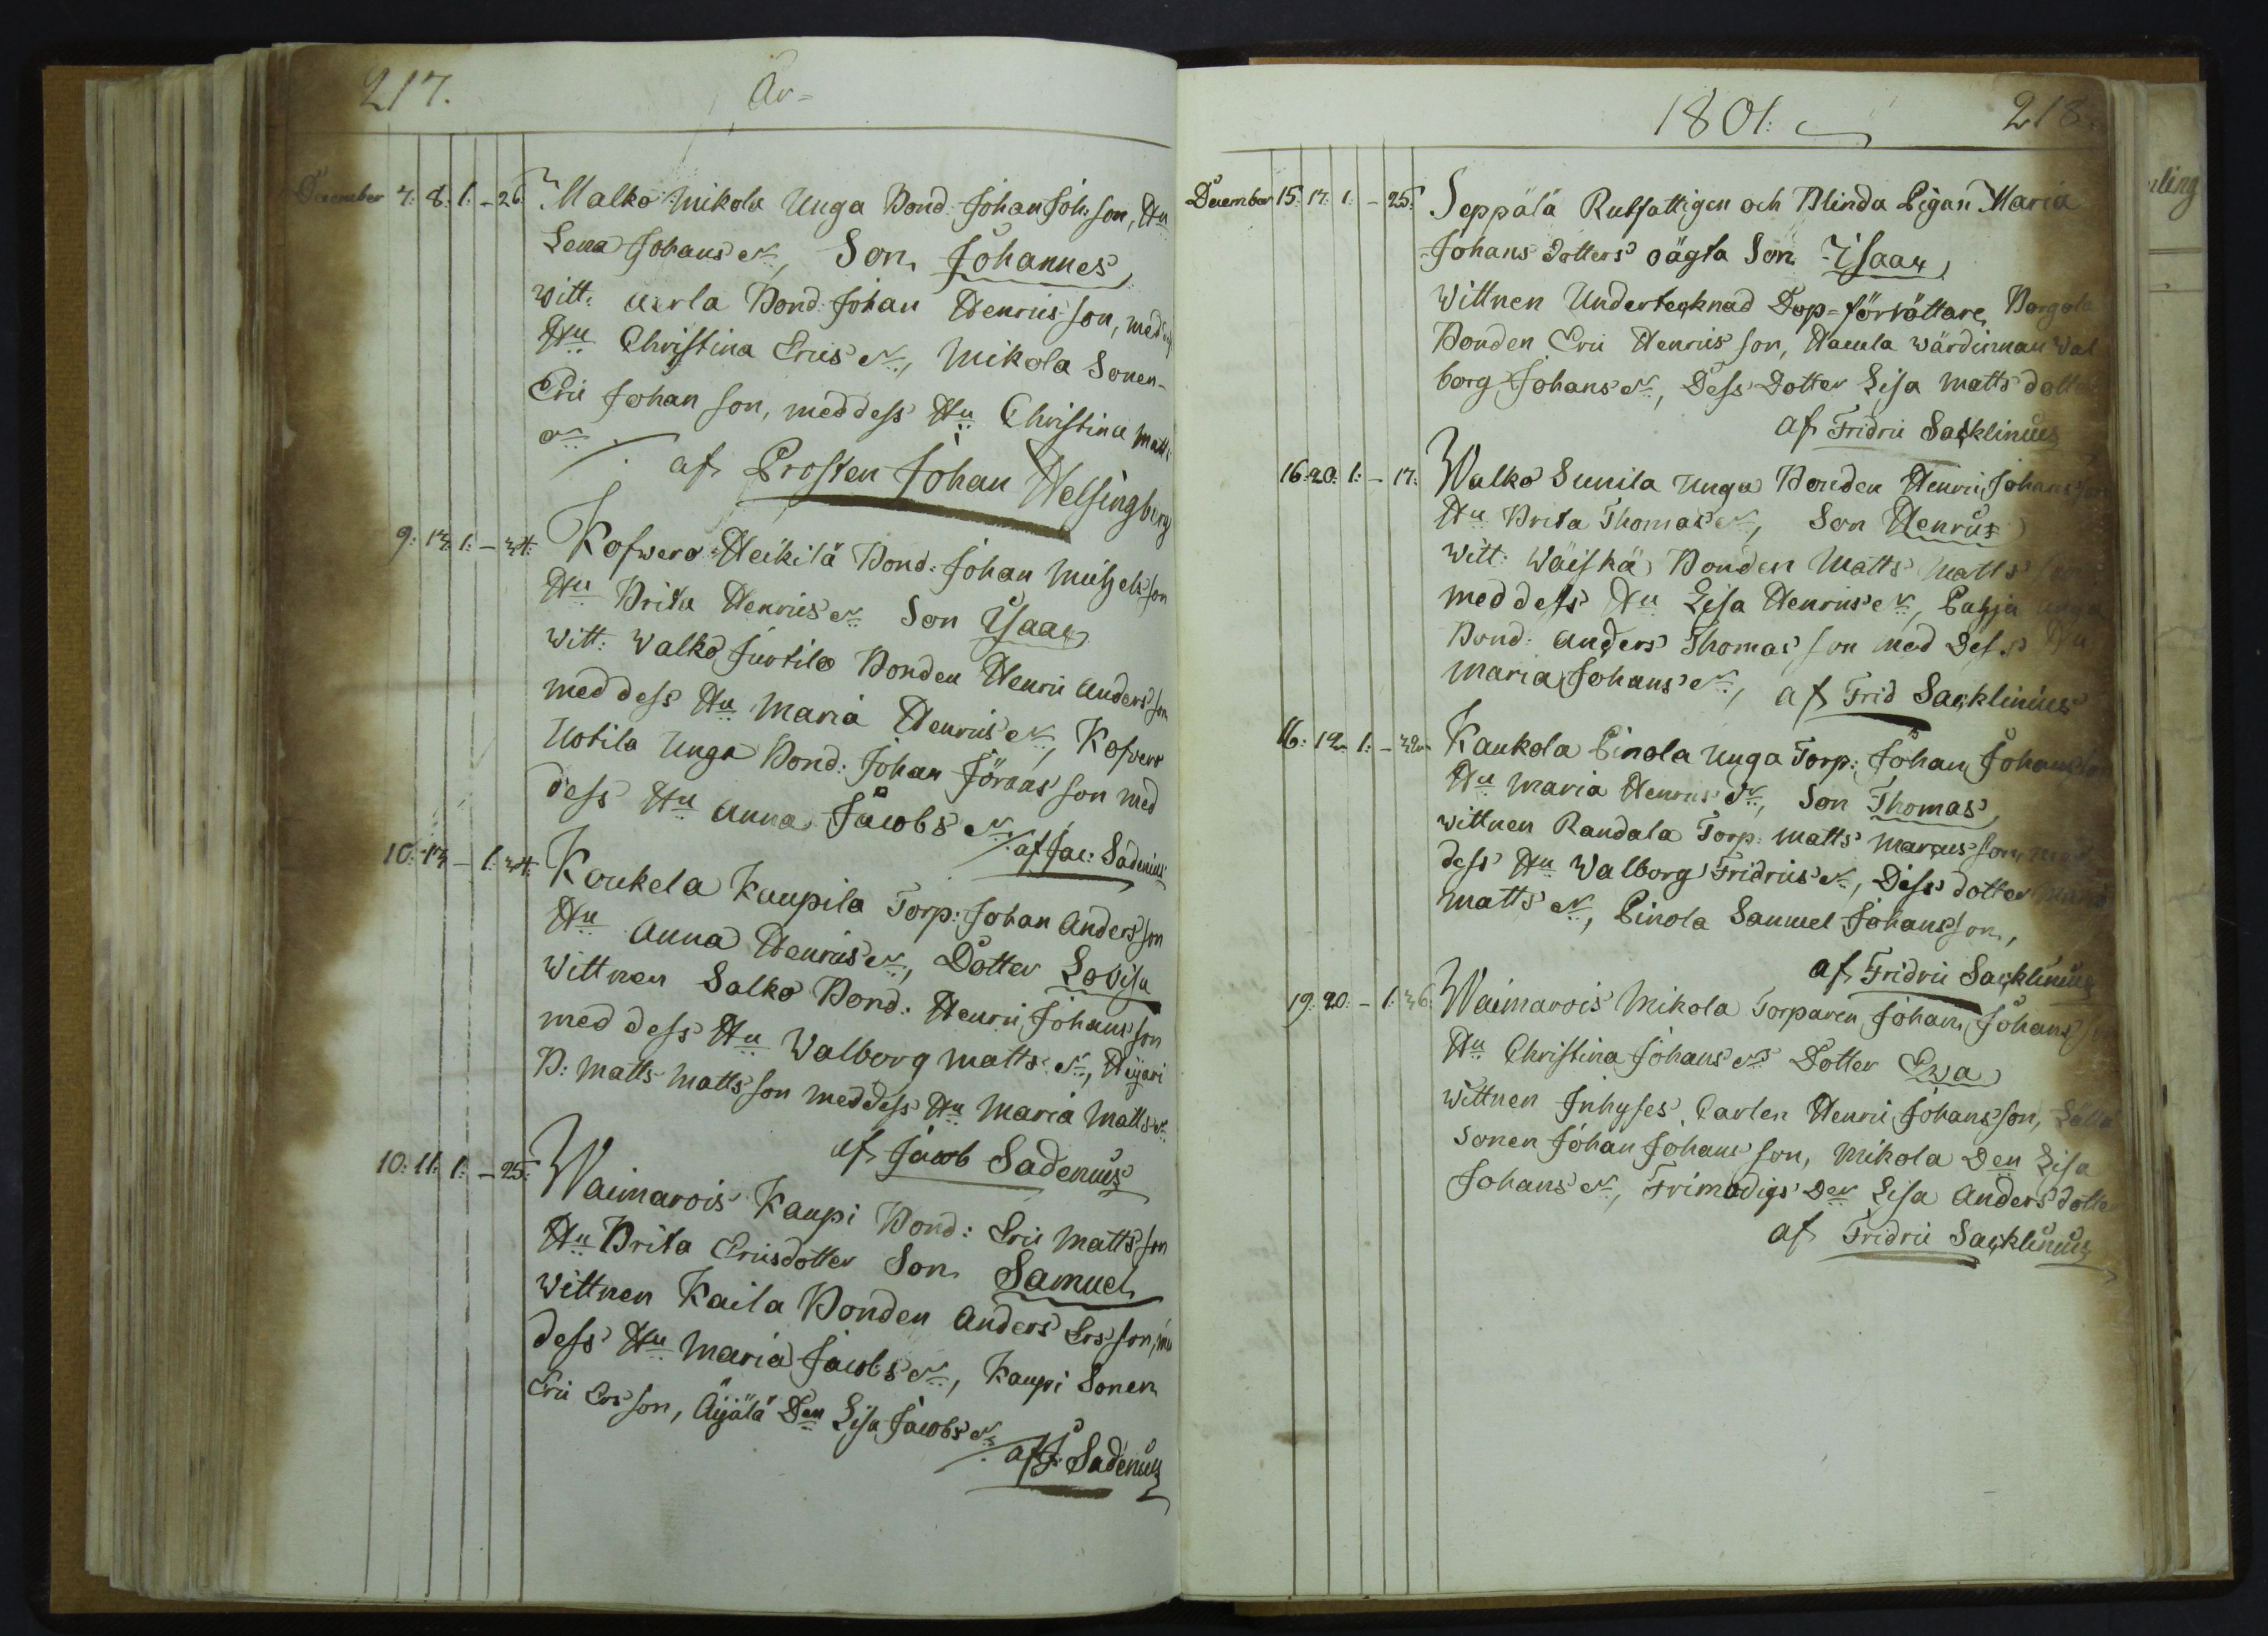 217.
År=
December 7. 8. 1. - 26.
Malko Mikola Unga Bond. Johan Joh: son, Hu
Lena Johans dr, Son Johannes,
Witt. Uerla Bond. Johan Henrics son, med
Hu Christina Erics dr, Mikola Sonen
Eric Johan son, med dess Hu Christina Matts
dr
af Prosten Johan Helsingberg
9. 13. 1. - 34.
Kofwero Heikilä Bond. Johan Michels son
Hu Brita Henrics dr Son Isaac
Witt. Walko Juotila Bonden Henric Anders son
med dess Hu Maria Henrics dr, Kofwero
Uotila Unga Bond. Johan Jöraas son med
dess Hu Anna Jacobs dr
af Jac: Sadenius
10. 13. - 1. 34.
Koukela Kaupila Torp. Johan Anders son
Hu Anna Henrics dr, Dotter Lovisa
Wittnen Salko Bond. Henric Johans son
med dess Hu Walborg Matts dr, Heijari
B: Matts Matts son med dess Hu Maria Matts dr
af Jacob Sadenius
10. 11. 1. - 25.
Waimarois Kaupi Bond: Eric Matts son
Hu Brita Ericsdotter Son Samuel
Wittnen Kaila Bonden Anders Ers son,
dess Hu Maria Jacobs dr, Kaupi Sonen
Eric Ers son, Äijälä Den Lisa Jacobs dr
af J. Sadenius
1801.
218.
December 15. 17. 1. - 25.
Seppälä Rutfattigen och Blinda Pigan Maria
Johans dotters oägta Son Isaac,
Wittnen Undertecknad Dop=förrättare, Borgola
Bonden Eric Henrics son, Hacula Wärdinnan Wal
borg Johans dr, Dess Dotter Lisa Matts dotter
af Fridric Sacklinius
16. 20. 1. - 17.
Walko Sunila Unga Bonden Henric Johans son
Hu Brita Thomas dr, Son Henric
Witt: Wäiskä Bonden Matts Matts son
med dess Hu Lisa Henrics dr, Pahja Unga
Bond: Anders Thomas son med Dess Hu
Maria Johans dr, af Frid Sacklinius
16. 19. 1. - 32.
Kaukola Pinola Unga Torp: Johan Johans son
Hu Maria Henrics dr, Son Thomas,
Wittnen Randala Torp: Matts Marcus son,
dess Hu Walborg Fridrics dr, Dess dotter
Matts dr, Pinola Samuel Johans son,
af Fridric Sacklinius
19. 20. - 1. 36.
Waimarois Mikola Torparen Johan Johans son
Hu Christina Johans dr Dotter Ewa
Wittnen Inhyses Carlen Henric Johans son,
Sonen Johan Johans son, Mikola Den Lisa
Johans dr, Frimodigs Der Lisa Anders dotter
af Fridric Sacklinius